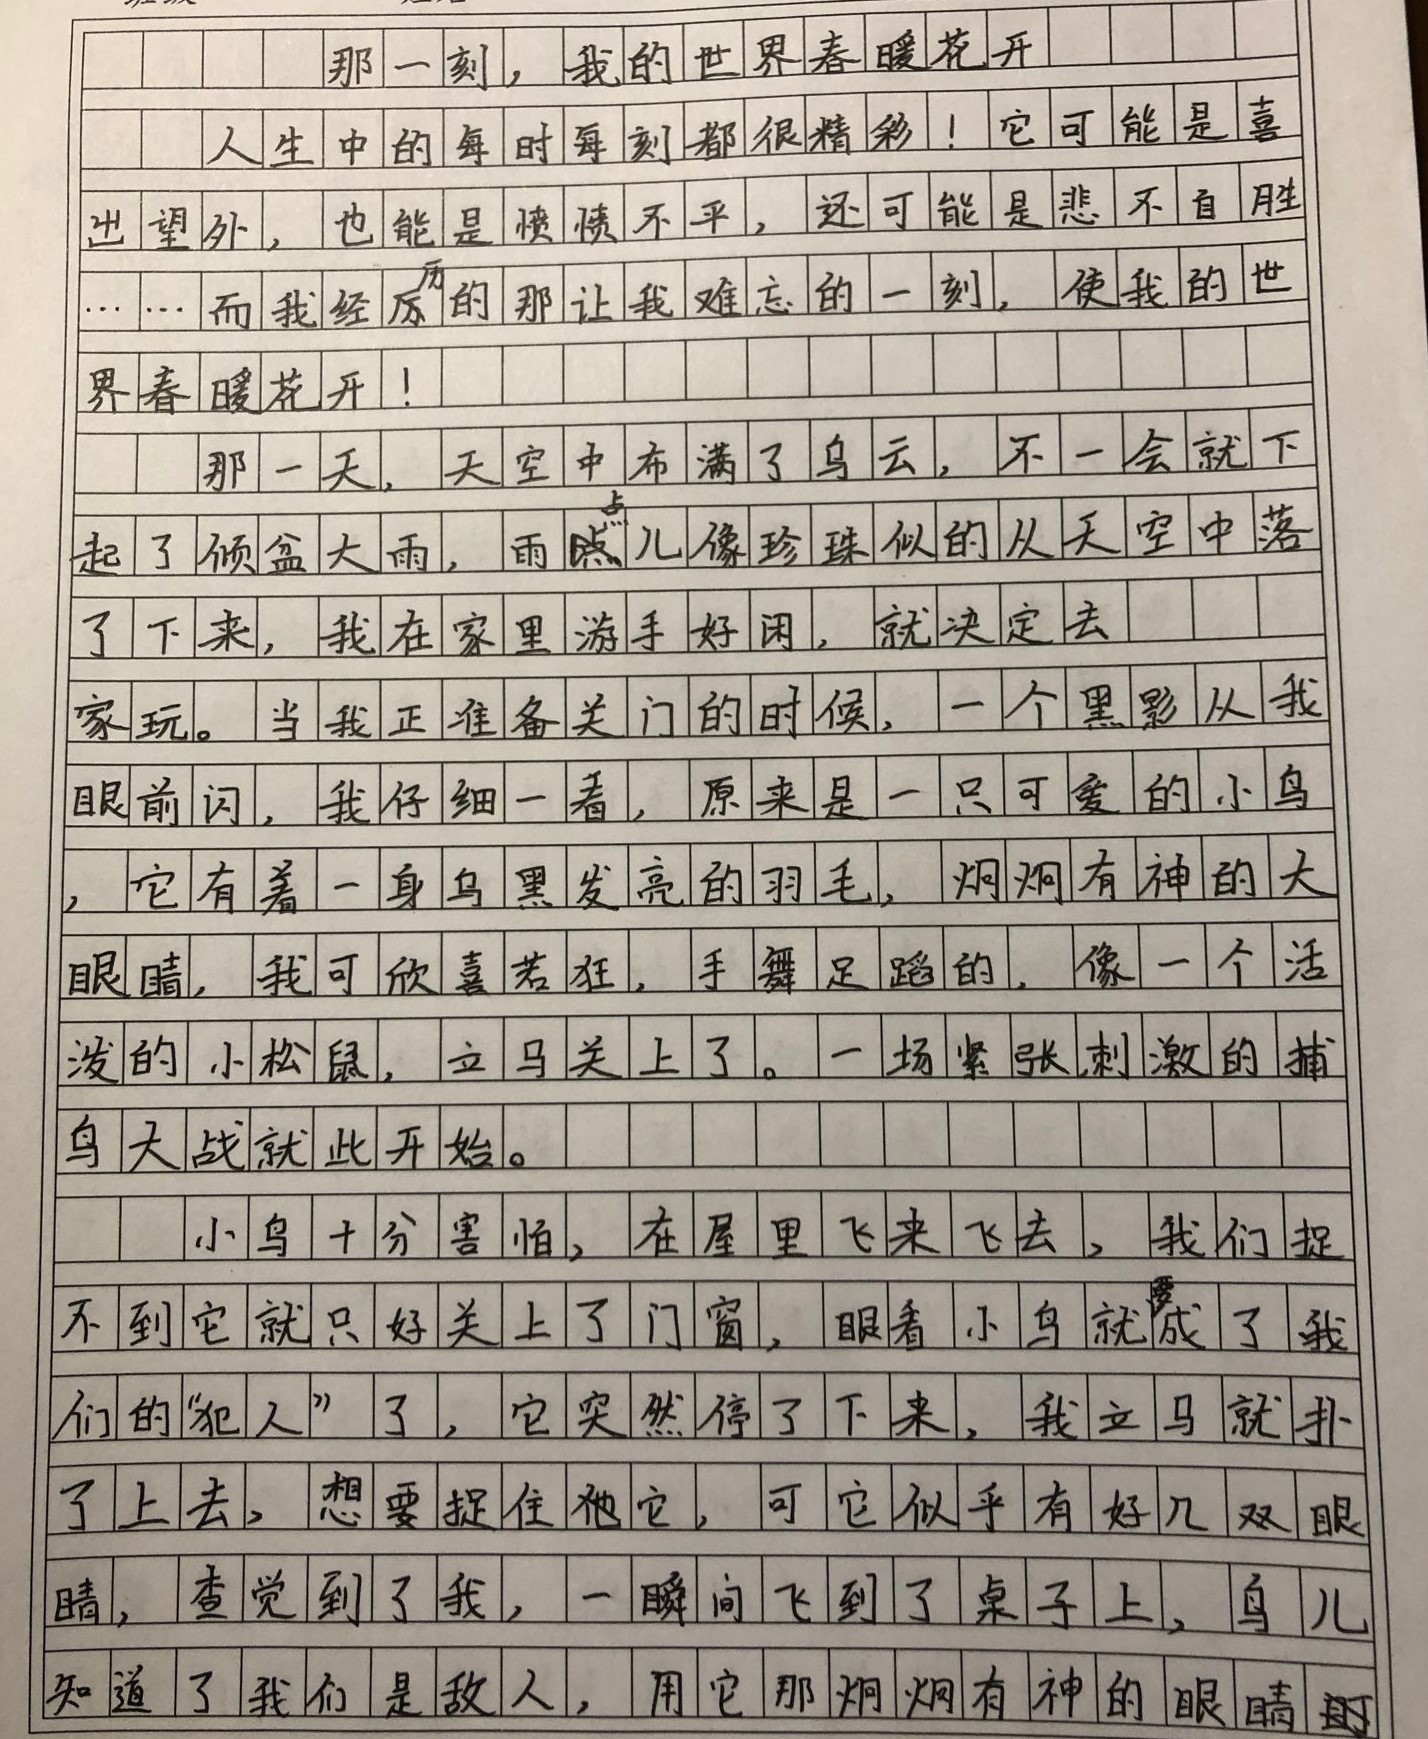 那一刻，我的世界春暖花开
人生中的每时每刻都很精彩！它可能是喜
出望外，也能是愤愤不平，还可能是悲不自胜
……而我经历的那让我难忘的一刻，使我的世
界春暖花开！
那一天，天空中布满了乌云，不一会就下
起了倾盆大雨，雨点儿像珍珠似的从天空中落
了下来，我在家里游手好闲，就决定去
家玩。当我正准备关门的时候，一个黑影从我
眼前闪，我仔细一看，原来是一只可爱的小鸟
，它有着一身乌黑发亮的羽毛，炯炯有神的大
眼睛，我可欣喜若狂，手舞足蹈的，像一个活
泼的小松鼠，立马关上了。一场紧张刺激的捕
鸟大战就此开始。
小鸟十分害怕，在屋里飞来飞去，我们捉
不到它就只好关上了门窗，眼看小鸟就要成了我
们的“犯人”了，它突然停了下来，我立马就扑
了上去，想要捉住他它，可它似乎有好几双眼
睛，查觉到了我，一瞬间飞到了桌子上，鸟儿
知道了我们是敌人，用它那炯炯有神的眼睛